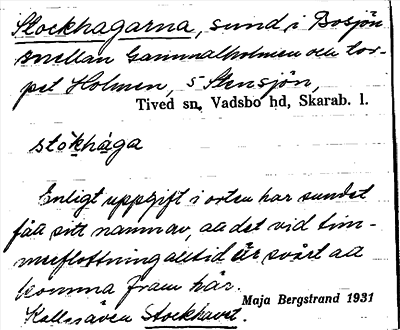 Stockhagarna, sund i Bosjön
mellan Gammalholmen och tor-
pet Holmen, S Stensjön,
Tived sn, Vadsbo hd, Skarab. l.
stókhàga
Enligt uppgift i orten har sundet
fåa sitt namn av, aa det vid tim-
merflottning alltid är svårt aa
komma fram här.
Kallas även Stockhavet.
Maja Bergstrand 1931